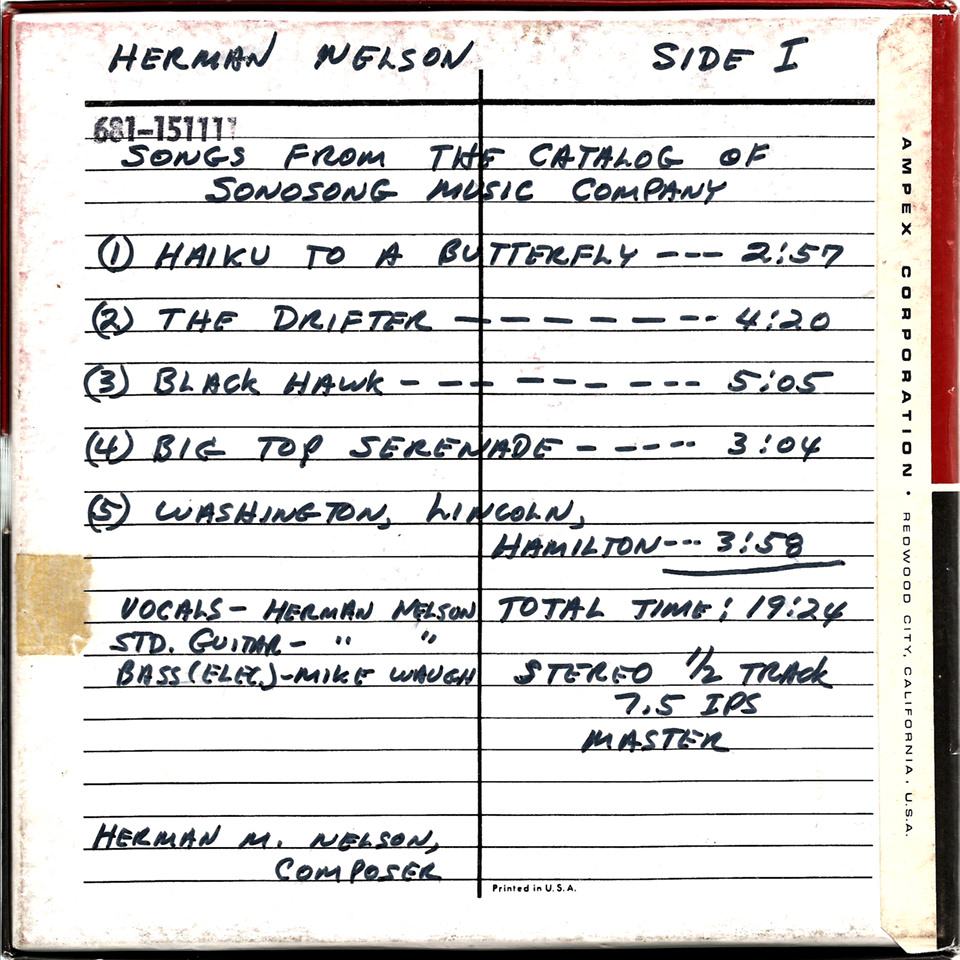 HERMAN NELSON SIDE I
681-151111
SONGS FROM THE CATALOG OF
SONOSONG MUSIC COMPANY
(1) HAIKU TO A BUTTERFLY --- 2:57
(2) THE DRIFTER -------- 4:20
(3) BLACK HAWK --------- 5:05
(4) BIG TOP SERENADE ----- 3:04
(5) WASHINGTON, LINCOLN,
HAMILTON--- 3:58
VOCALS- HERMAN NELSON TOTAL TIME: 19:24
STD. GUITAR- " "
BASS(ELEC.)-MIKE WAUGH STEREO 1/2 TRACK
7.5 IPS
MASTER
HERMAN M. NELSON,
COMPOSER
Printed in U.S.A.
AMPEX CORPORATION · REDWOOD CITY, CALIFORNIA, U.S.A.